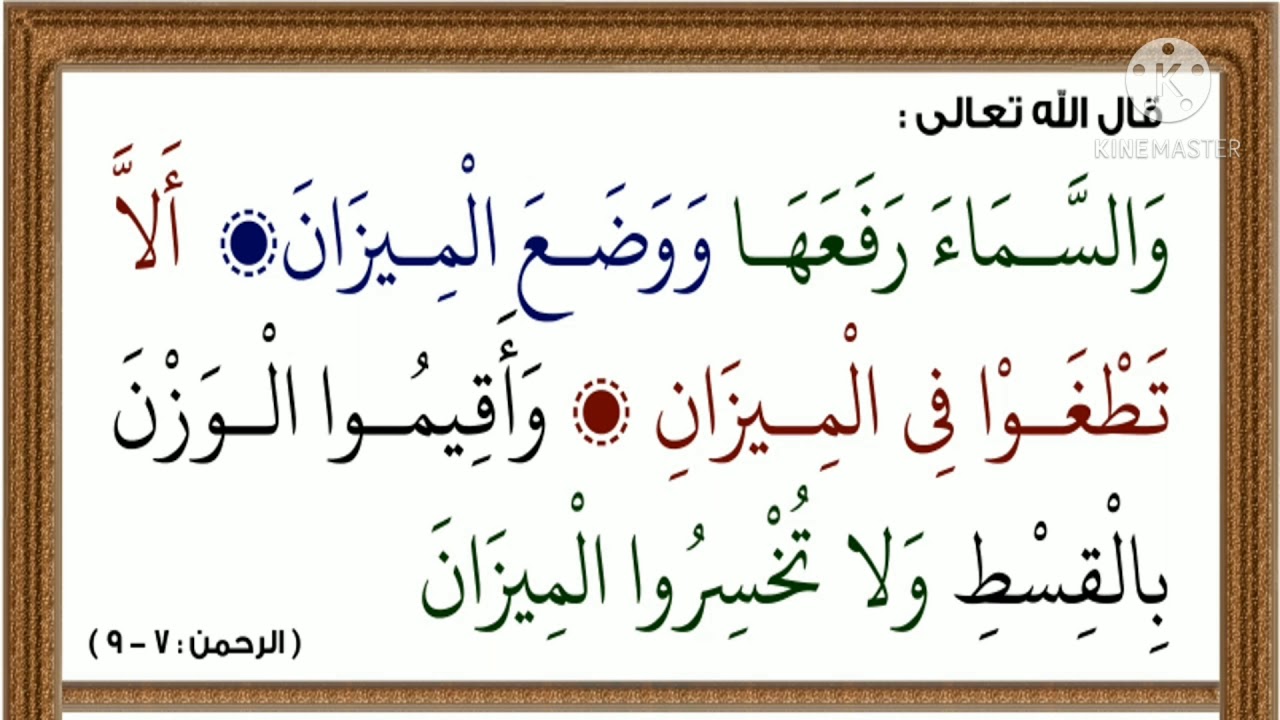 قال الله تعالى :
KINEMASTER
وَالسَّمَاءَ رَفَعَهَا وَوَضَعَ الْمِيزَانَ ۝ أَلاَّ
تَطْغَوْا فِى الْمِيزَانِ ۝ وَأَقِيمُوا الْوَزْنَ
بِالْقِسْطِ وَلا تُخْسِرُوا الْمِيزَانَ
( الرحمن : ٧ - ٩ )